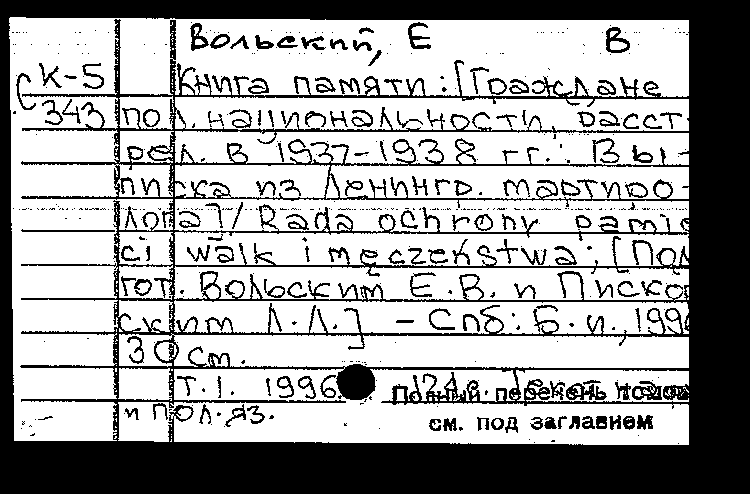 Вольский, Е В
СК-5 Книга памяти: [Граждане
343 пол. национальности, расст-
рел. в 1937-1938 гг.: Вы-
писка из Ленингр. мартиро-
лога] / Rada ochrony pamię
ci walk i męczeństwa; [Под
гот. Вольским Е.В. иПиско
ским Л.Л.] - Спб: Б.и., 199
30 см.
Т.1. 1996. 174с. Текст на рус.
и пол. яз.
Полный перечень томов
см. под заглавием